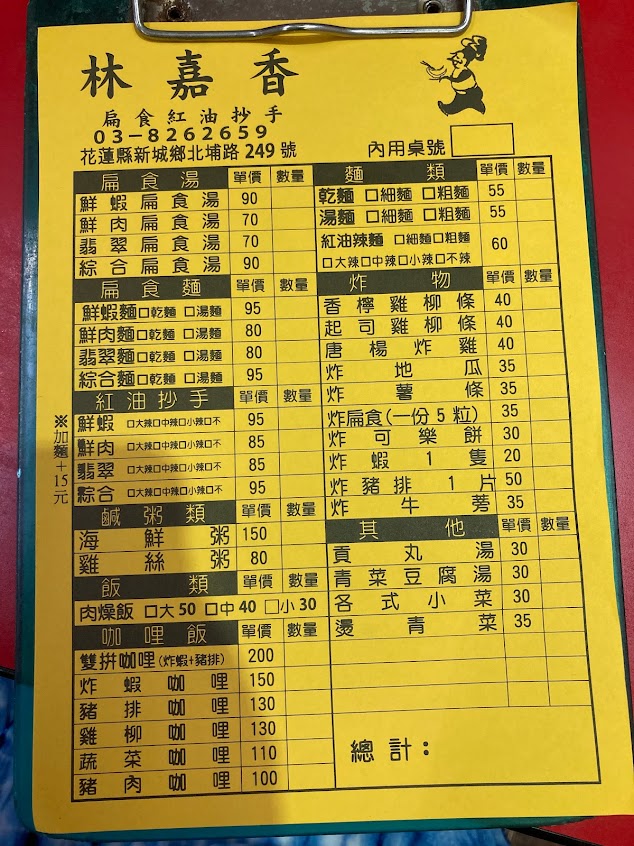 林嘉香
扁食紅油抄手
03-8262659
花蓮縣新城鄉北埔路 249 號
內用桌號
扁食湯 單價 數量
鮮蝦扁食湯 90
鮮肉扁食湯 70
翡翠扁食湯 70
綜合扁食湯 90
扁食麵 單價 數量
鮮蝦麵 □乾麵 □湯麵 95
鮮肉麵 □乾麵 □湯麵 80
翡翠麵 □乾麵 □湯麵 80
綜合麵 □乾麵 □湯麵 95
紅油抄手 單價 數量
鮮蝦 □大辣□中辣□小辣□不 95
鮮肉 □大辣□中辣□小辣□不 85
翡翠 □大辣□中辣□小辣□不 85
綜合 □大辣□中辣□小辣□不 95
※加麵+15元
鹹粥類 單價 數量
海鮮粥 150
雞絲粥 80
飯類 單價 數量
肉燥飯 □大 50 □中 40 □小 30
咖哩飯 單價 數量
雙拼咖哩(炸蝦+豬排) 200
炸蝦咖哩 150
豬排咖哩 130
雞柳咖哩 130
蔬菜咖哩 110
豬肉咖哩 100
麵類 單價 數量
乾麵 □細麵 □粗麵 55
湯麵 □細麵 □粗麵 55
紅油辣麵 □細麵□粗麵 60
□大辣□中辣□小辣□不辣
炸物 單價 數量
香檸雞柳條 40
起司雞柳條 40
唐楊炸雞 40
炸地瓜 35
炸薯條 35
炸扁食(一份 5 粒) 35
炸可樂餅 30
炸蝦 1 隻 20
炸豬排 1 片 50
炸牛蒡 35
其他 單價 數量
貢丸湯 30
青菜豆腐湯 30
各式小菜 30
燙青菜 35
總計：